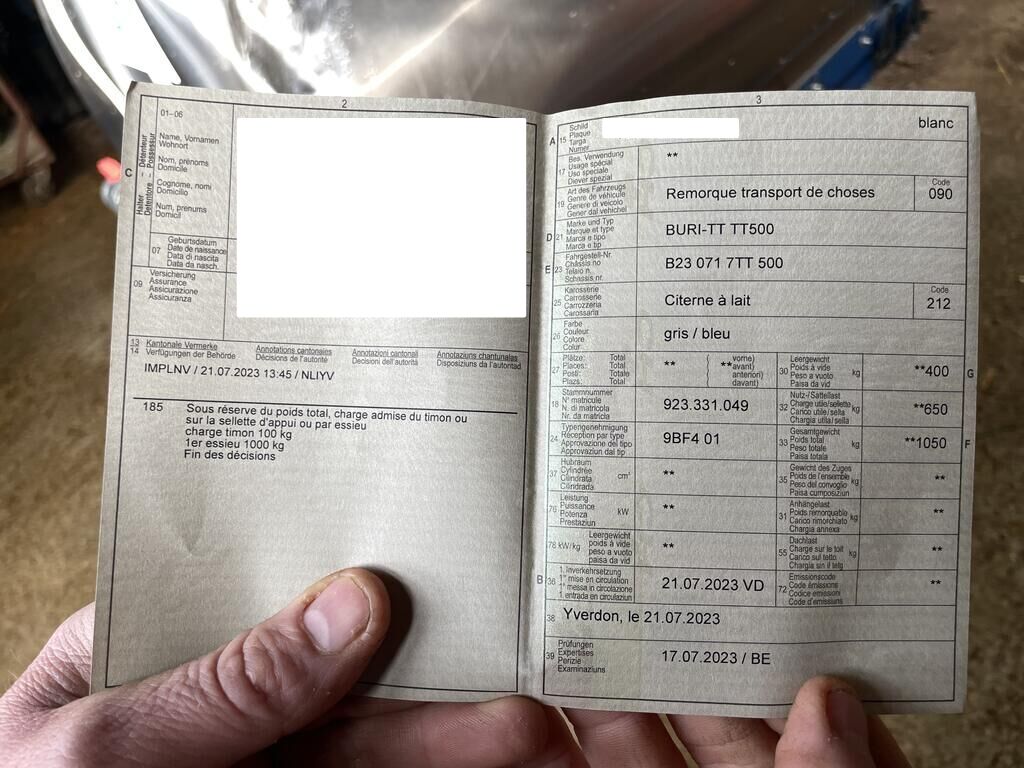 2
01–06
C
Halter – Détenteur
Detentore – Possessur
Name, Vornamen
Wohnort
Nom, prénoms
Domicile
Cognome, nomi
Domicilio
Num, prenums
Domicil
07
Geburtsdatum
Date de naissance
Data di nascita
Data da nasch.
09
Versicherung
Assurance
Assicurazione
Assicuranza
13
14
Kantonale Vermerke
Verfügungen der Behörde
Annotations cantonales
Décisions de l'autorité
Annotazioni cantonali
Decisioni dell'autorità
Annotaziuns chantunalas
Disposiziuns da l'autoritad
IMPLNV / 21.07.2023 13:45 / NLIYV
185 Sous réserve du poids total, charge admise du timon ou
sur la sellette d'appui ou par essieu
charge timon 100 kg
1er essieu 1000 kg
Fin des décisions
3
A 15
Schild
Plaque
Targa
Numer
blanc
17
Bes. Verwendung
Usage spécial
Uso speciale
Diever spezial
**
19
Art des Fahrzeugs
Genre de véhicule
Genere di veicolo
Gener dal vehichel
Remorque transport de choses
Code
090
D 21
Marke und Typ
Marque et type
Marca e tipo
Marca e tip
BURI-TT TT500
E 23
Fahrgestell-Nr.
Châssis no
Telaio n.
Schassis nr.
B23 071 7TT 500
25
Karosserie
Carrosserie
Carrozzeria
Carossaria
Citerne à lait
Code
212
26
Farbe
Couleur
Colore
Colur
gris / bleu
27
Plätze: Total
Places: Total
Posti: Totale
Plazs: Total
**
( vorne)
( **avant)
anteriori)
davant)
30
Leergewicht
Poids à vide
Peso a vuoto
Paisa da vid
kg
**400
G
18
Stammnummer
N° matricule
N. di matricola
Nr. da matricla
923.331.049
32
Nutz-/Sattellast
Charge utile/sellette
Carico utile/sella
Chargia utila/sella
kg
**650
24
Typengenehmigung
Réception par type
Approvazione del tipo
Approvaziun dal tip
9BF4 01
33
Gesamtgewicht
Poids total
Peso totale
Paisa totala
kg
**1050
F
37
Hubraum
Cylindrée
Cilindrata
Cilindrada
cm³
**
35
Gewicht des Zuges
Poids de l'ensemble
Peso del convoglio
Paisa cumposiziun
kg
**
76
Leistung
Puissance
Potenza
Prestaziun
kW
**
31
Anhängelast
Poids remorquable
Carico rimorchiato
Chargia annexa
kg
**
78 kW/kg
Leergewicht
poids à vide
peso a vuoto
paisa da vid
**
55
Dachlast
Charge sur le toit
Carico sul tetto
Chargia sin il tetg
kg
**
B 36
1. Inverkehrsetzung
1re mise en circulation
1a messa in circolazione
1. entrada en circulaziun
21.07.2023 VD
72
Emissionscode
Code émissions
Codice emissioni
Code d'emissiuns
**
38
Yverdon, le 21.07.2023
39
Prüfungen
Expertises
Perizie
Examinaziuns
17.07.2023 / BE